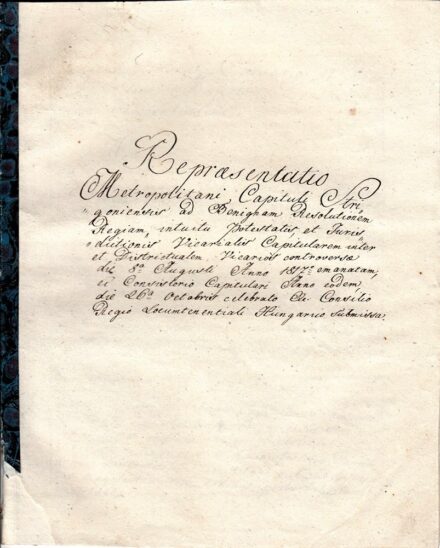 Repræsentatio
Metropolitani Capituli Stri
„goniensis ad Benignam Resolutionem
Regiam, intuitu Potestatis et Juris
„dictionis Vicarialis Capitularem inter
et Districtualem Vicarios controversa
die 8ª Augusti Anno emanatam,
ex Consistorio Capitulari Anno eodem,
die 26ª Octobris celebrato Consilio
Regio Locumtenentiali Hungarico submissa.